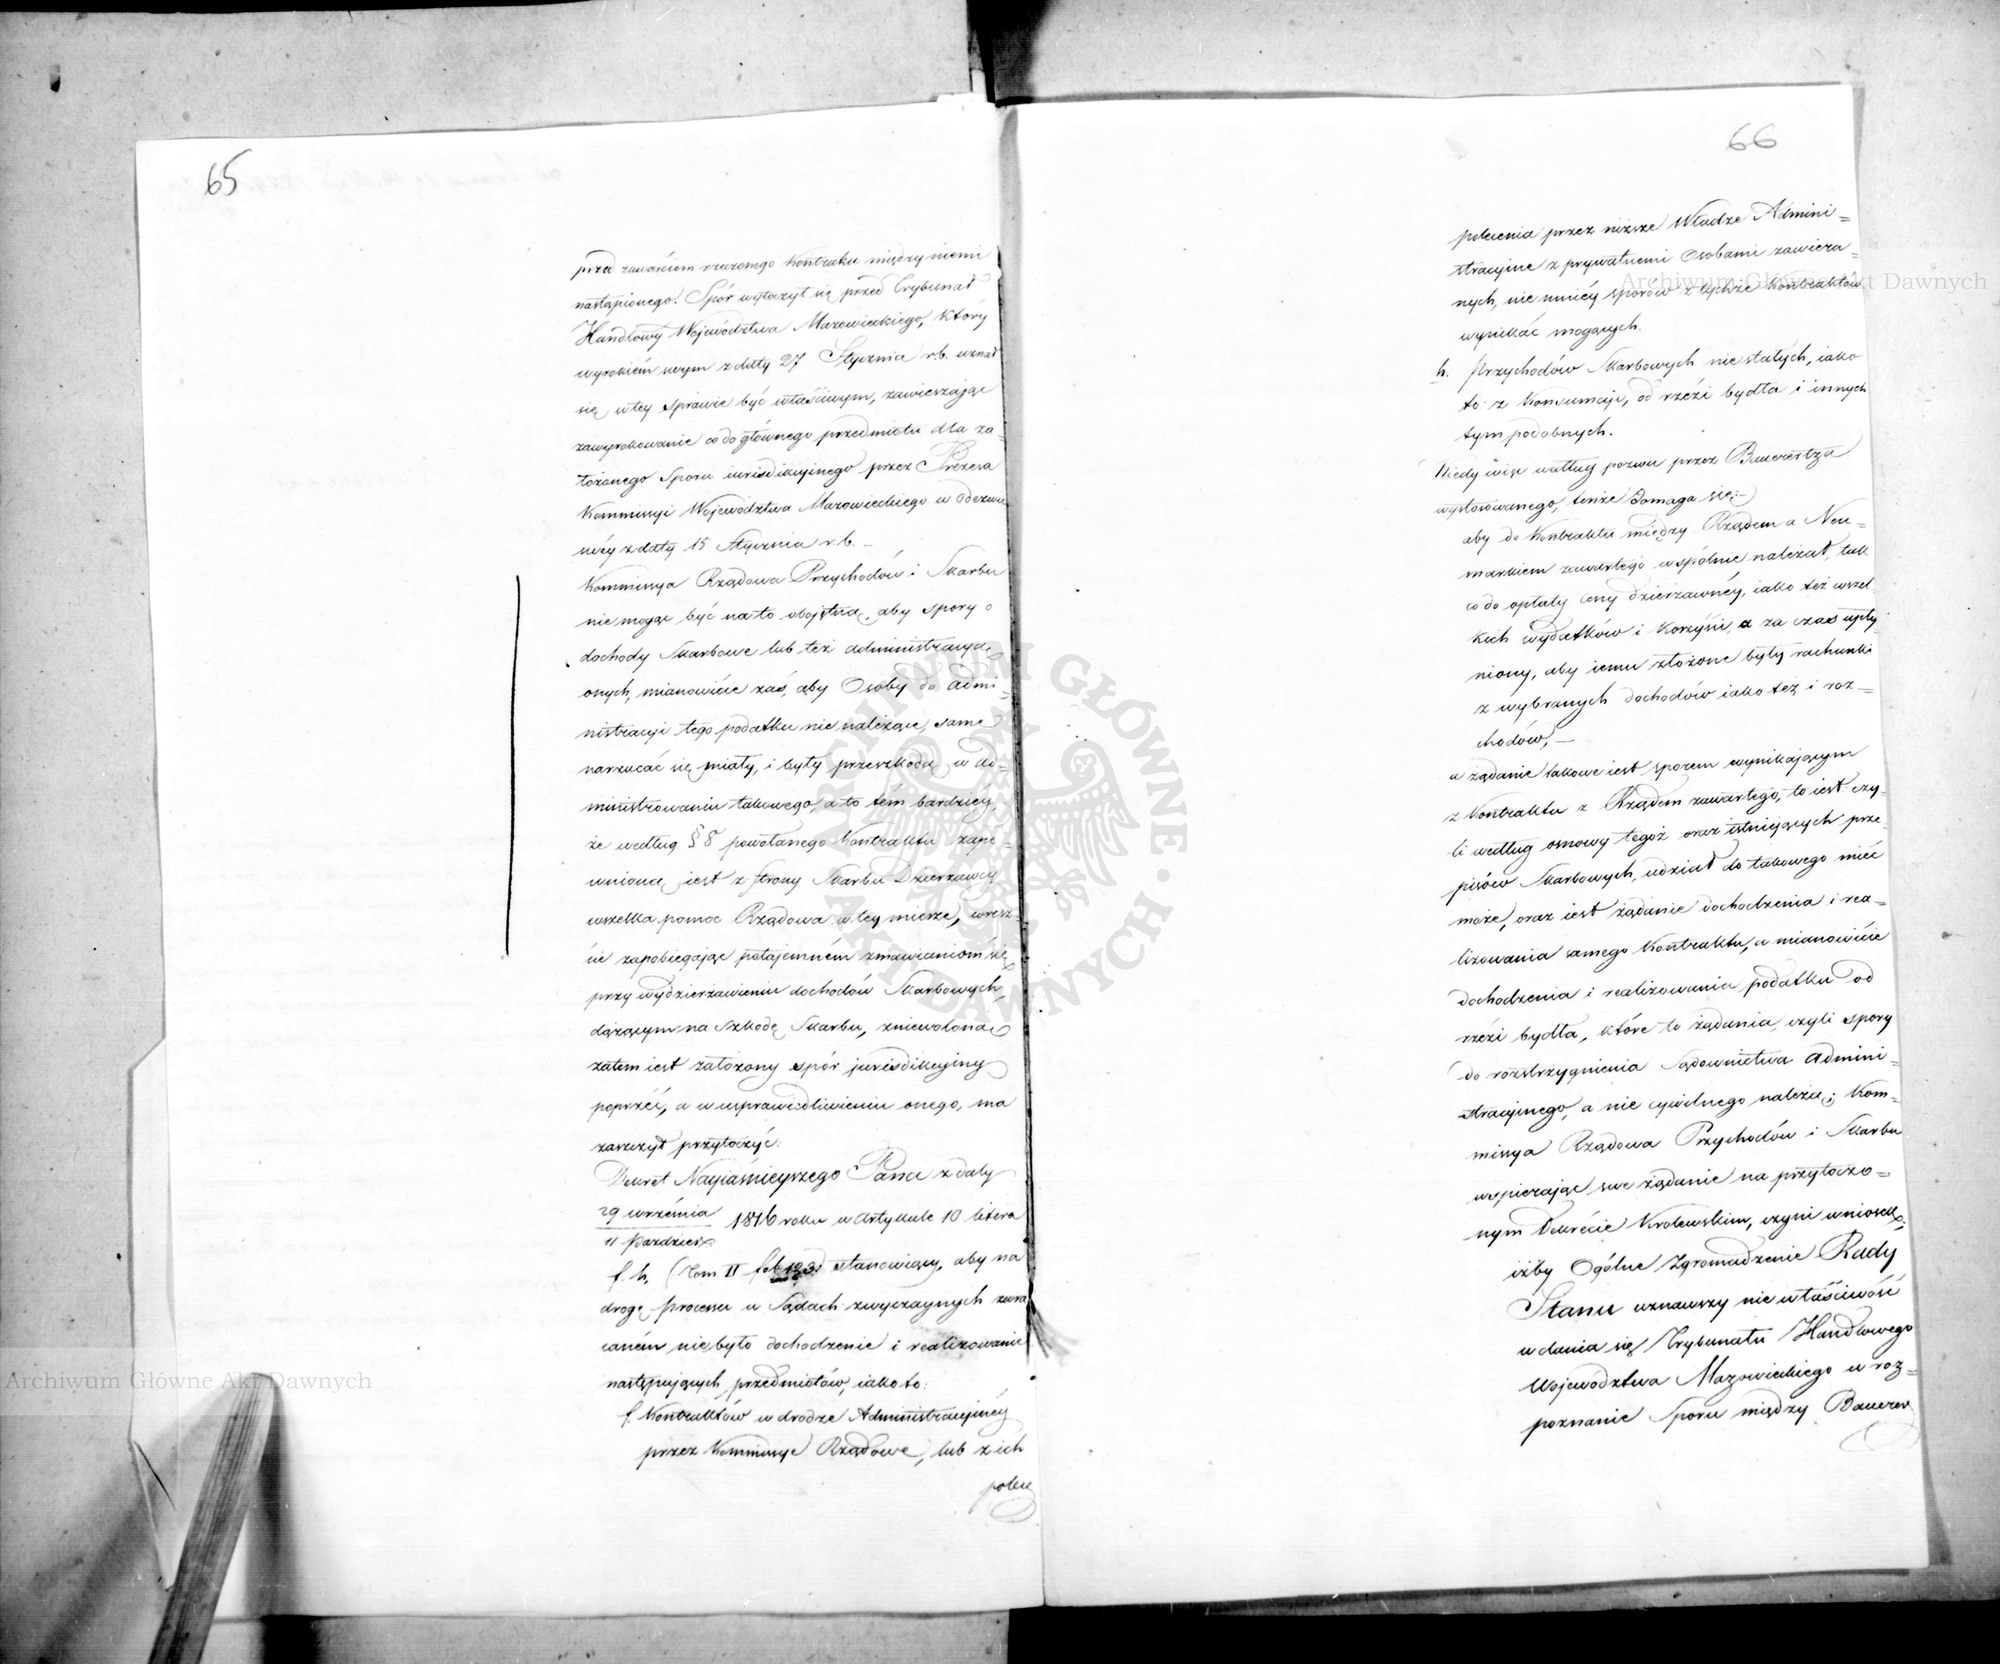 65
przed zawarciem rzeczonego Kontraktu między niemi
nastąpionego. Spór wytoczył się przed Trybunał
Handlowy Województwa Mazowieckiego, który
wyrokiem swym z daty 27 Stycznia r.b. uznał
się w tey sprawie być właściwym, zawieszając
zawyrokowanie co do głównego przedmiotu dla za=
łożonego Sporu iurisdikcyinego przez Prezesa
Kommissyi Województwa Mazowieckiego w Odezwie
z daty 15 Stycznia r.b. —
Kommissya Rządowa Przychodów i Skarbu
nie mogąc być na to oboiętną, aby spory o
dochody Skarbowe lub też administracyą
onych, mianowicie zaś, aby Osoby do admi=
nistracyi tego podatku nie należące, same
narzucać się miały, i były przeszkodą w ad=
ministrowaniu takowego, a to tém bardziéy,
że według § 8 powołanego Kontraktu zape=
wnioną iest z strony Skarbu Dzierzawcy
wszelka pomoc Rządowa w tey mierze, wresz=
cie zapobiegając potajemném zmawianiom się
przy wydzierzawieniu dochodów Skarbowych,
dążącym na szkodę Skarbu, zniewolona
zatem iest założony spór jurisdikcyiny
poprzéć, a w usprawiedliwieniu onego, ma
zaszczyt przytoczyć:
Dekret Nayiaśnieyszego Pana z daty
29 września
11 Paździer. 1816 roku w Artykule 10 litera
f. h. (Tom II stanowiący, aby na
drogę processu w Sądach zwyczaynych zwra
caném nie było dochodzenie i realizowanie
następujących przedmiotów, iako to:
f. Kontraktów w drodze Administracyinéy
przez Kommissye Rządowe, lub z ich
polece
66
polecenia przez niższe Władze Admini=
stracyine z prywatnemi Osobami zawiera=
nych, nie mniéy sporów z tychże Kontraktów
wynikać mogących.
h. Przychodów Skarbowych niestałych, iako
to: z Konsumcyi, od rzézi bydła i innych
tym podobnych.
Kiedy więc według pozwu przez Bauerertza
wystosowanego, tenże domaga się: —
aby do Kontraktu między Rządem a Neu=
markiem zawartego wspólnie należał, tak
co do opłaty ceny dzierzawnéy, iako też wszel
kich wydatków i korzyści, a za czas upły=
niony, aby iemu złożone były rachunki
z wybranych dochodów iako też i roz=
chodów, —
a żądanie takowe iest sporem wynikającym
z Kontraktu z Rządem zawartego, to iest czy=
li według osnowy tegoż oraz istniejących prze=
pisów Skarbowych, udział do takowego mieć
może, oraz iest żądanie dochodzenia i rea=
lizowania samego Kontraktu, a mianowicie
dochodzenia i realizowania podatku od
rzézi bydła, które to żądania, czyli spory
do rozstrzygnienia Sądownictwa Admini=
stracyinego, a nie cywilnego należą; Kom=
missya Rządowa Przychodów i Skarbu
wspierając swe żądanie na przytoczo=
nym Dekrecie Królewskim, czyni wniosek:
iżby Ogólne Zgromadzenie Rady
Stanu uznawszy niewłaściwość
udania się Trybunału Handlowego
Województwa Mazowieckiego w roz=
poznanie Sporu między Bauerer
Archiwum Główne Akt Dawnych
Archiwum Główne Akt Dawnych
ARCHIWUM GŁÓWNE AKT DAWNYCH